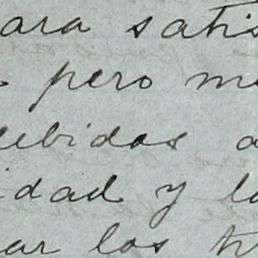 ara satis
pero me
debidas a
idad y la
ar los tr